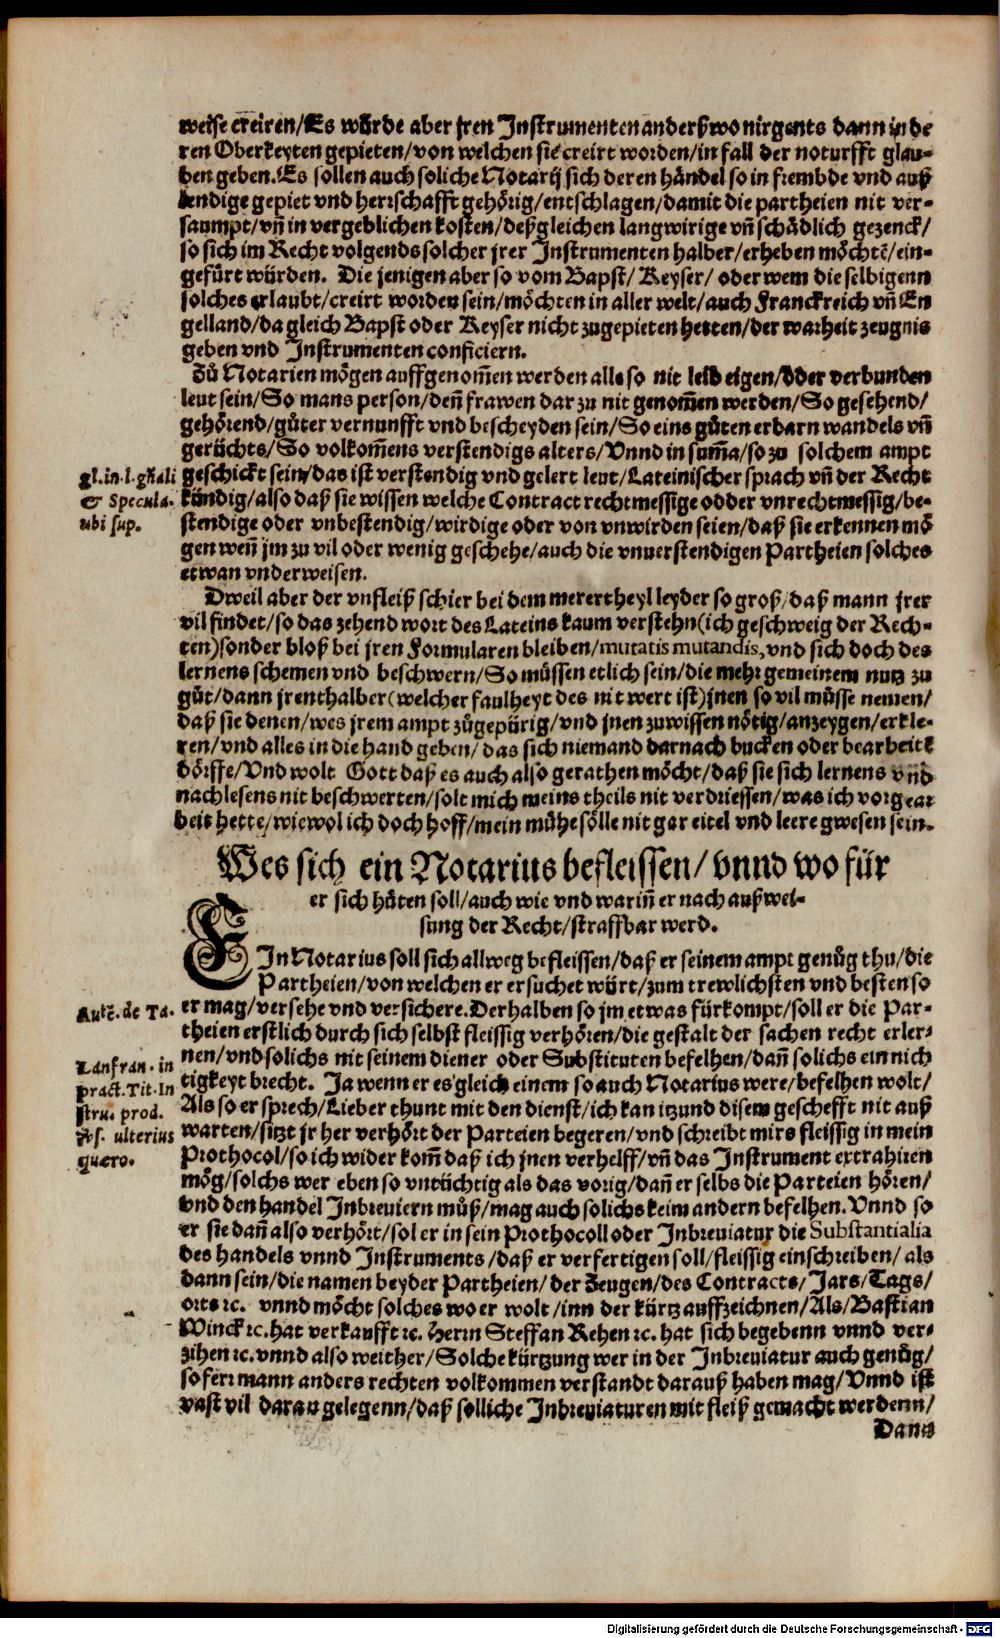 weise creiren/Es würde aber jren Instrumenten anderßwo nirgents dann in de
ren Oberkeyten gepieten/von welchen sie creirt worden/in fall der noturfft glau-
ben geben. Es sollen auch soliche Notarij sich deren händel so in frembde vnd auß
lendige gepiet vnd herrschafft gehörig/entschlagen/damit die partheien nit ver-
saumpt/vñ in vergeblichen kosten/deßgleichen langwirige vñ schädlich gezenck/
so sich im Recht volgends solcher jrer Instrumenten halber/erheben möchtẽ/ein-
gefürt würden. Die jenigen aber so vom Bapst/Keyser/oder wem die selbigenn
solches erlaubt/creirt worden sein/möchten in aller welt/auch Franckreich vñ En
gelland/da gleich Bapst oder Keyser nicht zugepieten hetten/der warheit zeugnis
geben vnd Instrumenten conficiern.
Zů Notarien mögen auffgenom̃en werden alle so nit leib eigen/oder verbunden
leut sein/So mans person/deñ frawen dar zu nit genom̃en werden/So gesehend/
gehörend/gůter vernunfft vnd bescheyden sein/So eins gůten erbarn wandels vñ
gerüchts/So volkom̃ens verstendigs alters/Vnnd in sum̃a/so zu solchem ampt
gl. in. l. gñali geschickt sein/das ist verstendig vnd gelert leut/Lateinischer sprach vñ der Recht
& Specula. kündig/also daß sie wissen welche Contract rechtmessige odder vnrechtmessig/be-
ubi sup. stendige oder vnbestendig/wirdige oder von vnwirden seien/daß sie erkennen mö
gen weñ jm zu vil oder wenig geschehe/auch die vnuerstendigen Partheien solches
etwan vnderweisen.
Dweil aber der vnfleiß schier bei dem merertheyl leyder so groß/daß mann jrer
vil findet/so das zehend wort des Lateins kaum verstehn(ich geschweig der Rech-
ten)sonder bloß bei jren Formularen bleiben/mutatis mutandis, vnd sich doch des
lernens schemen vnd beschwern/So müssen etlich sein/die mehr gemeinem nutz zu
gůt/dann jrenthalber(welcher faulheyt des nit wert ist)jnen so vil müsse nemen/
daß sie denen/wes jrem ampt zůgepürig/vnd jnen zuwissen nötig/anzeygen/erkle-
ren/vnd alles in die hand geben/das sich niemand darnach bucken oder bearbeitẽ
dörffe/Vnd wolt Gott daß es auch also gerathen möcht/daß sie sich lernens vnd
nachlesens nit beschwerten/solt mich meins theils nit verdriessen/was ich vorgear
beit hette/wiewol ich doch hoff/mein mühe sölle nit gar eitel vnd leere gwesen sein.
Wes sich ein Notarius befleissen/vnnd wo für
er sich hüten soll/auch wie vnd wariñ er nach außwei-
sung der Recht/straffbar werd.
EIn Notarius soll sich allweg befleissen/daß er seinem ampt genůg thu/die
Partheien/von welchen er ersuchet würt/zum trewlichsten vnd besten so
Autẽ. de Ta. er mag/versehe vnd versichere. Derhalben so jm etwas fürkompt/soll er die Par-
theien erstlich durch sich selbst fleissig verhören/die gestalt der sachen recht erler-
Lanfran. in nen/vnd solichs nit seinem diener oder Substituten befelhen/dañ solichs ein nich
pract. Tit. In tigkeyt brecht. Ja wenn er es gleich einem so auch Notarius were/befelhen wolt/
stru. prod. Als so er sprech/Lieber thunt mit den dienst/ich kan itzund disem gescheft nit auß
& s. ulterius warten/sitzt jr her verhört der Parteien begeren/vnd schreibt mirs fleissig in mein
quæro. Prothocol/so ich wider kom̃ daß ich jnen verhelff/vñ das Instrument extrahiren
mög/solchs wer eben so vntüchtig als das vorig/dañ er selbs die Parteien hören/
vnd den handel Inbreuiern můß/mag auch solichs keim andern befelhen. Vnnd so
er sie dañ also verhört/sol er in sein Prothocoll oder Inbreuiatur die Substantialia
des handels vnnd Instruments/daß er verfertigen soll/fleissig einschreiben/als
dann sein/die namen beyder Partheien/der Zeugen/des Contracts/Jars/Tags/
orts ꝛc. vnnd möcht solches wo er wolt/inn der kürtz auffzeichnen/Als/Bastian
Winck ꝛc. hat verkaufft ꝛc. Herrn Steffan Rehen ꝛc. hat sich begebenn vnnd ver-
zihen ꝛc. vnnd also weither/Solche kürtzung wer in der Inbreuiatur auch genůg/
so ferr mann anders rechten volkommen verstandt darauß haben mag/Vnnd ist
vast vil daran gelegenn/daß solliche Inbreuiaturen mit fleiß gemacht werdenn/
Dann
Digitalisierung gefördert durch die Deutsche Forschungsgemeinschaft - DFG